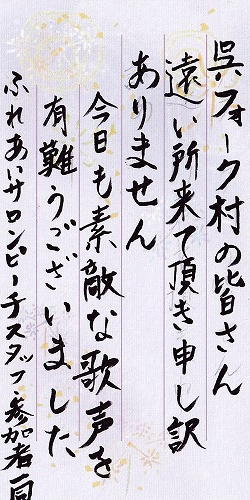 呉フォーク村の皆さん
遠い所来て頂き申し訳
ありません
今日も素敵な歌声を
有難うございました、
ふれあいサロンビーチスタッフ参加者一同